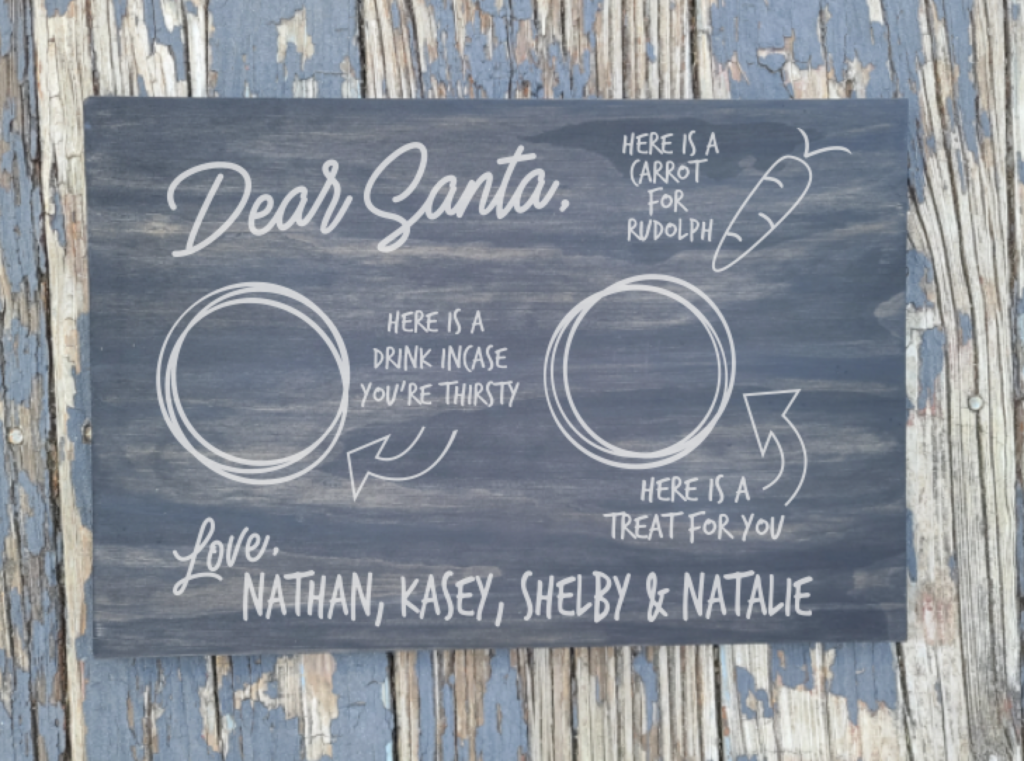 Dear Santa,
HERE IS A
CARROT
FOR
RUDOLPH
HERE IS A
DRINK INCASE
YOU'RE THIRSTY
HERE IS A
TREAT FOR YOU
Love,
NATHAN, KASEY, SHELBY & NATALIE